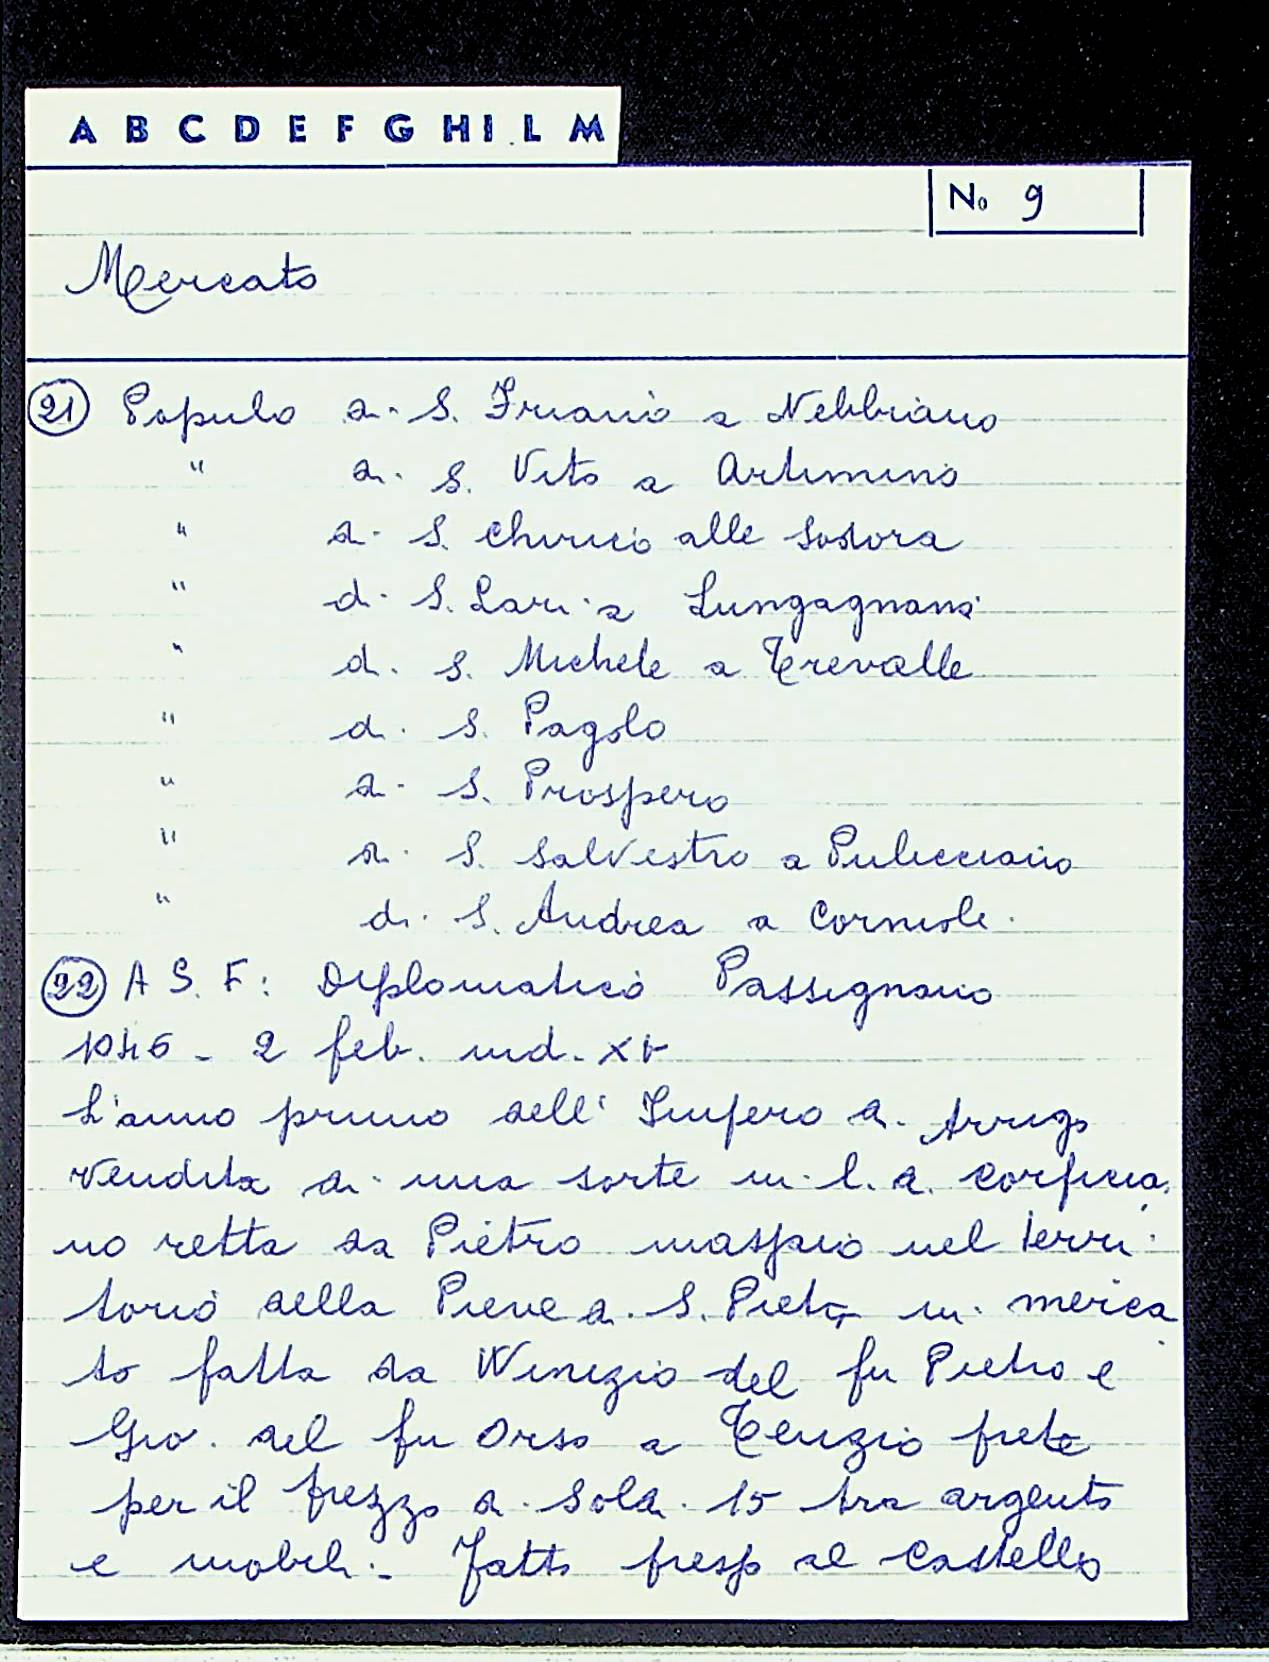 A B C D E F G H I L M
No 9
Mercato
21 Popolo di S. Friano a Nebbiano
" di S. Vito a Artimino
" di S. Chirico alle
" di S. Lari a Lungagnana
" di S. Michele a Trevalle
" di S. Pagolo
" di S. Prospero
" di S. Salvestro a Pulicciano
" di S. Andrea a Corniole.
22 A S. F: Diplomatico Passignano
1046 - 2 feb. ind. XV
L'anno primo dell' Impero di Arrigo
Vendita di una sorte in l. d. Corficia
no retta da Pietro massaio nel terri
torio della Pieve di S. Pietro in merca
to fatta da Winizio del fu Pietro e
Gio. del fu Orso a Tenzio prete
per il prezzo di sold. 15 tra argento
e mobili. Fatto presso al Castello